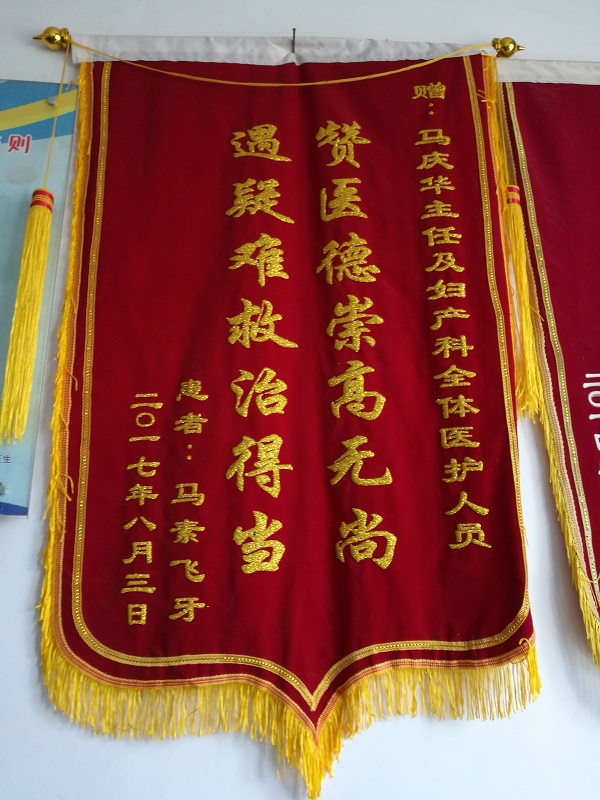 赠：马庆华主任及妇产科全体医护人员
赞医德崇高无尚
遇疑难救治得当
患者：马素飞牙
二〇一七年八月三日
则
生